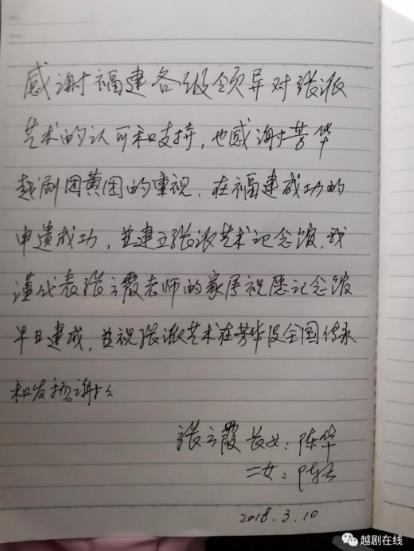 感谢福建各级领导对张派
艺术的认可和支持，也感谢芳华
越剧团黄团的重视，在福建成功的
申遗成功，並建立张派艺术记念馆，我
谨代表张云霞老师的家属祝愿记念馆
早日建成，並祝张派艺术在芳华及全国传承
和发扬谢谢
张云霞 长女：陈华
二女：陈
2018.3.10
越剧在线